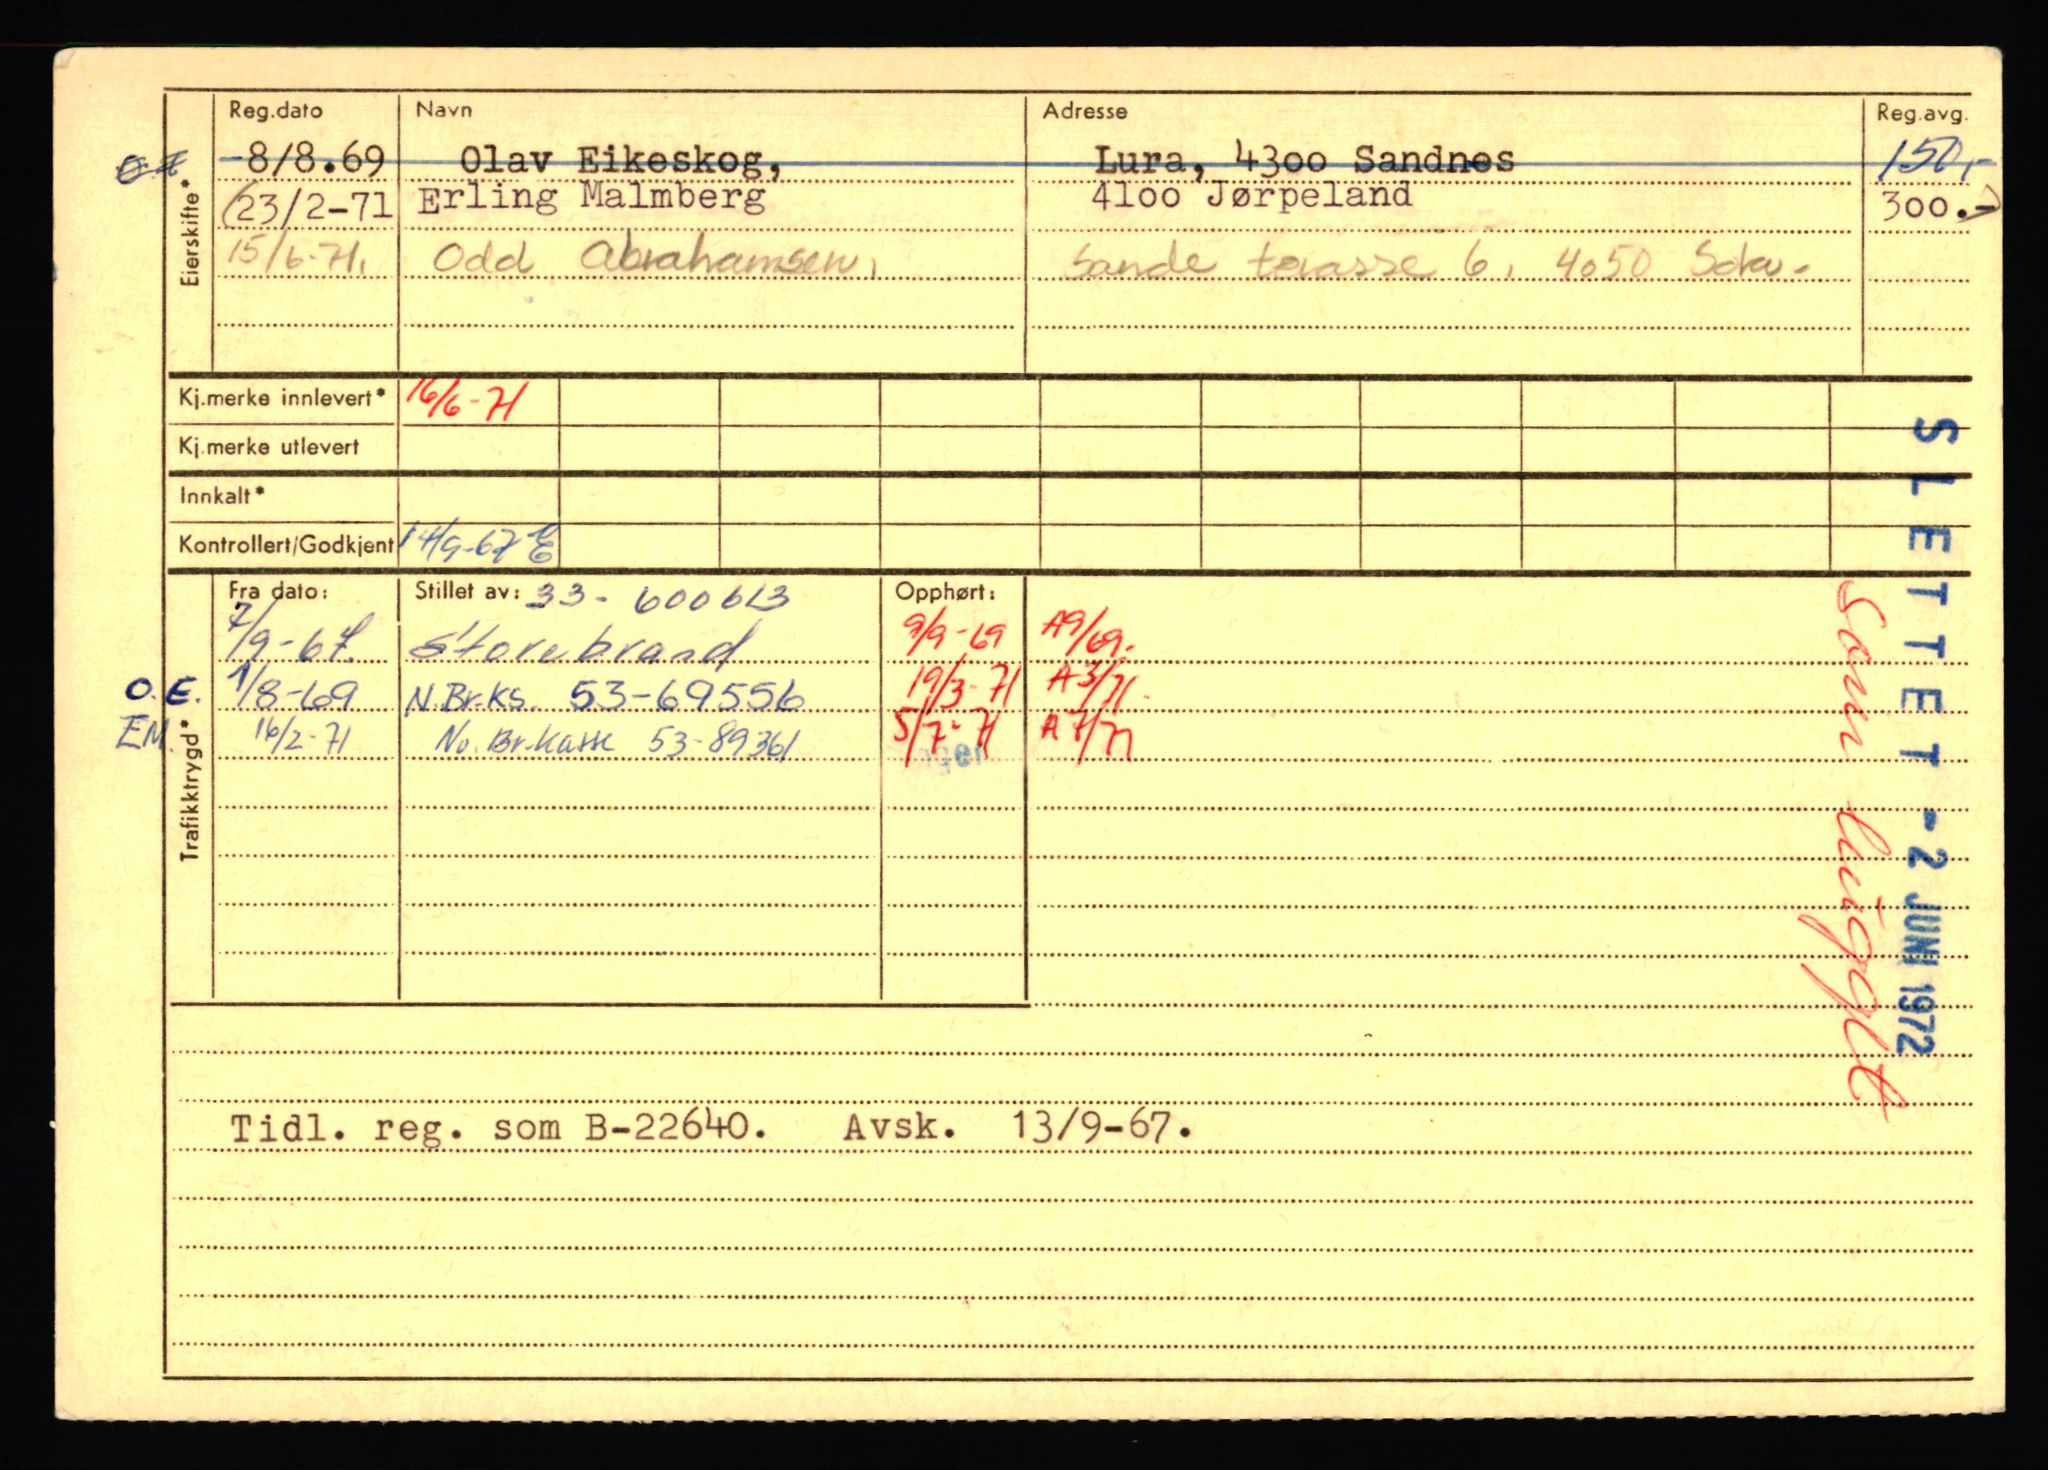 Reg.dato Navn Adresse Reg.avg.
-8/8.69 Olav Eikeskog, Lura, 4300 Sandnes 150,-
(23/2-71 Erling Malmberg 4100 Jørpeland 300.-)
15/6-71. Odd Abrahamsen, Sande terasse 6, 4050 Sola.
Eierskifte*
Kj.merke innlevert* 16/6-71
Kj.merke utlevert
Innkalt*
Kontrollert/Godkjent 14/9-67 E
Fra dato: Stillet av: 33-600613 Opphørt:
7/9-67. Storebrand 9/9-69 A9/69.
O.E. 1/8-69 N.Br.Ks. 53-69556 19/3-71 A3/71.
EM. 16/2-71 No. Br.kasse 53-89361 5/7-71 A7/71
Trafikktrygd*
SLETTET - 2 JUNI 1972
som
Tidl. reg. som B-22640. Avsk. 13/9-67.